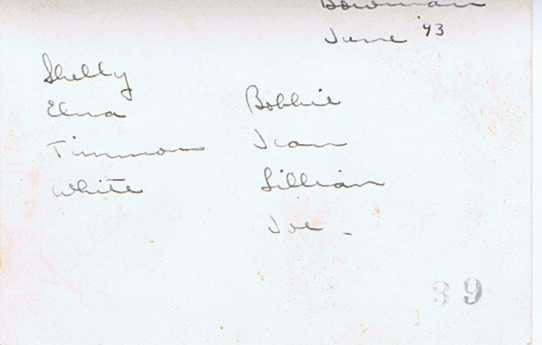 Bowman
June '43
Shelly
Elna
Timmons
White
Bobbie
Jean
Lillian
Joe -
39